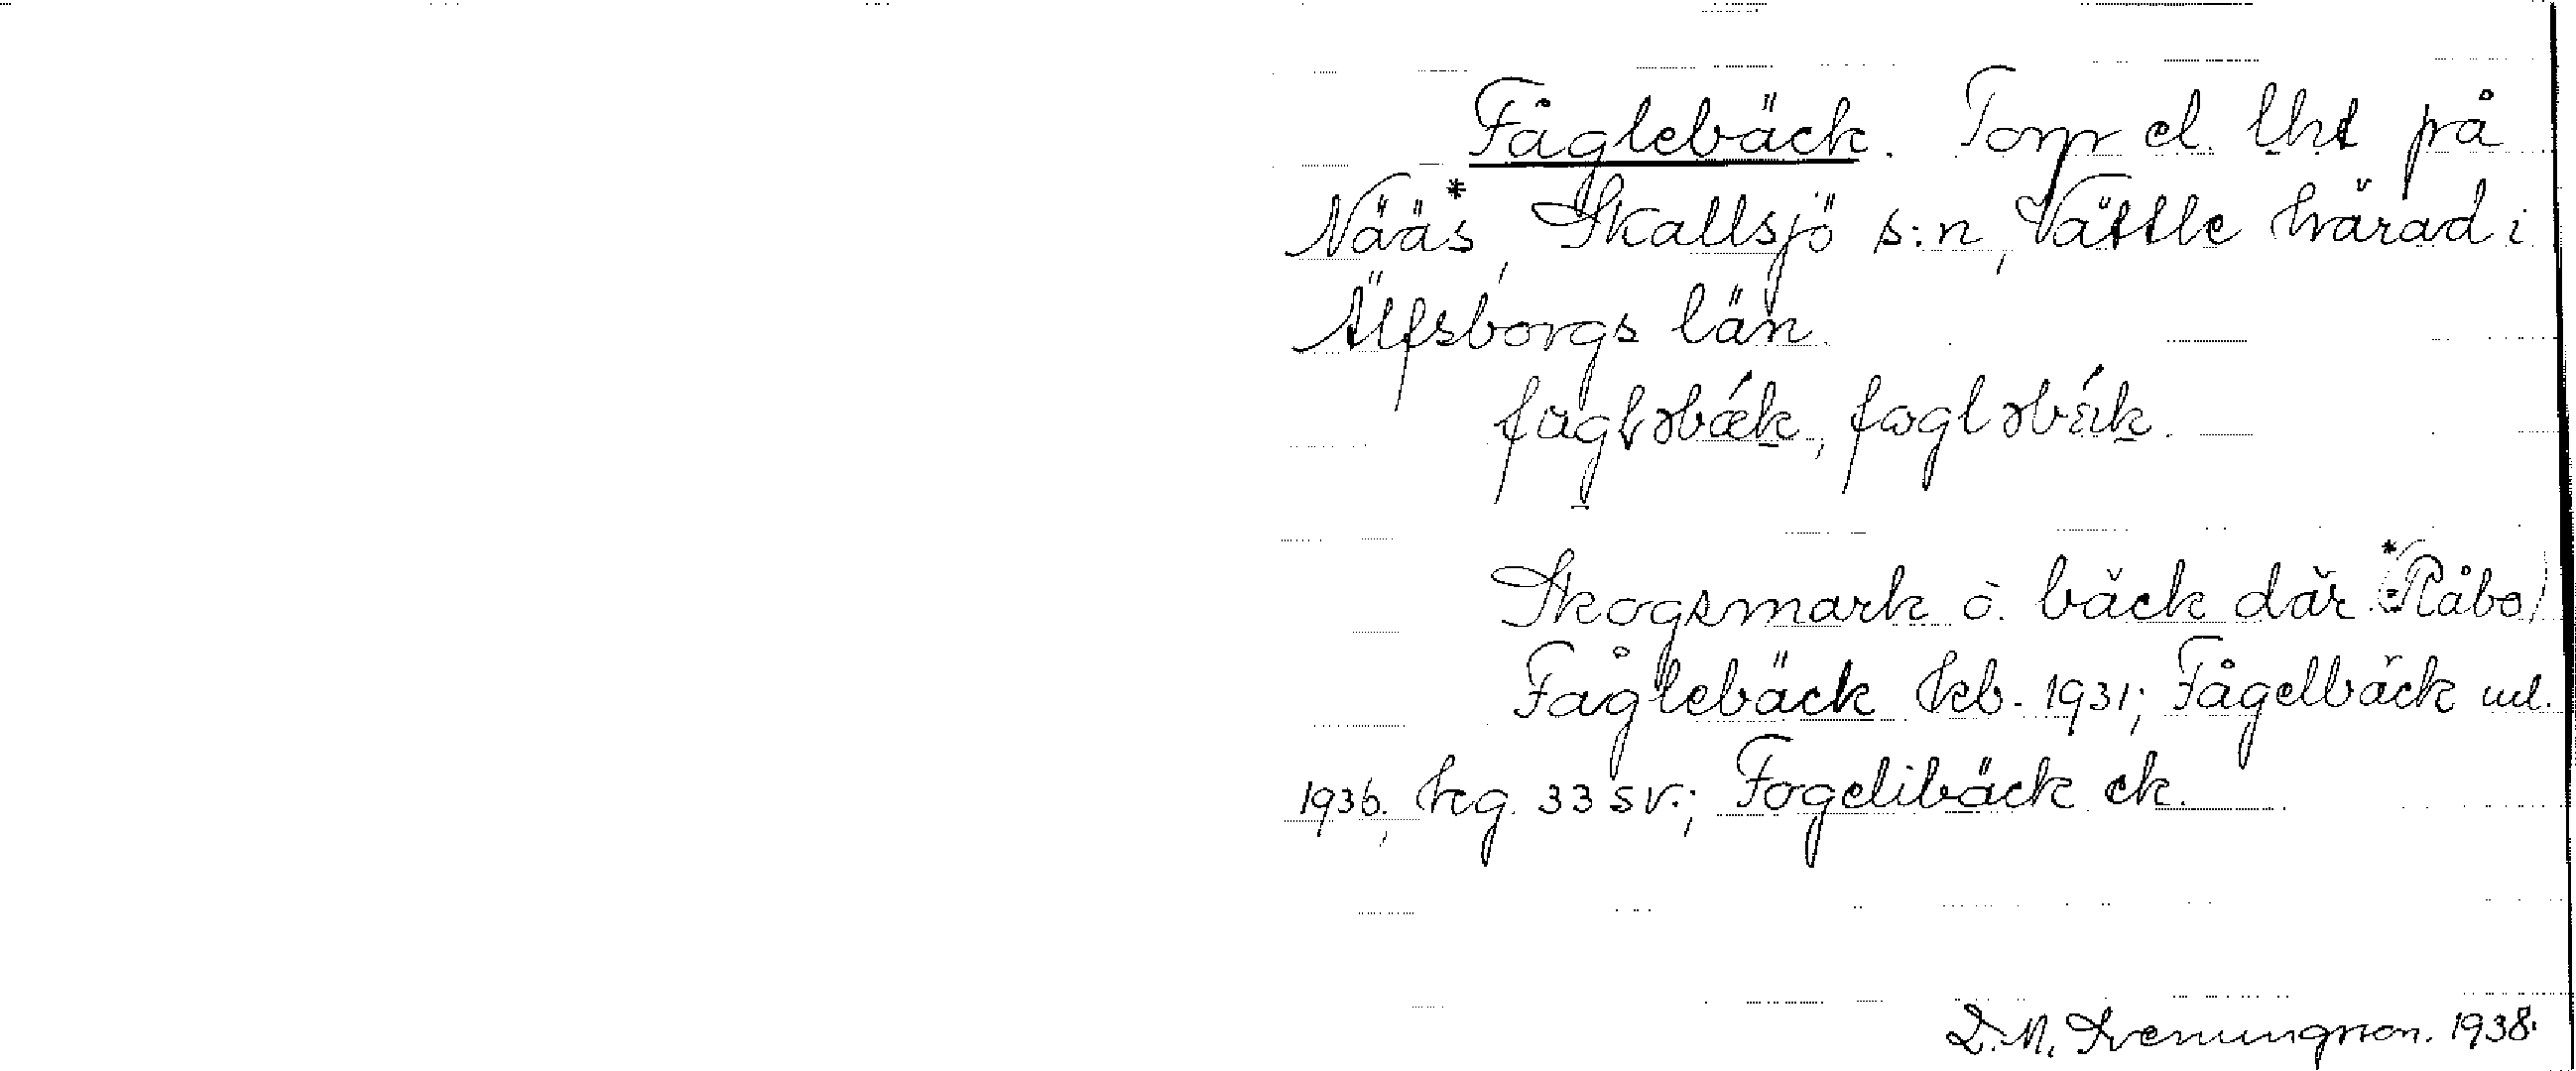 Fåglebäck. Torp el. lht på
Nääs*, Skallsjö s:n, Vättle härad i
Älfsborgs län.
Skogsmark o. bäck där (*Råbo)
Fåglebäck kb. 1931; Fågelbäck ul.
1936; hcg. 33 sv.; Fogelibäck ek.
D. N. Svenungsson. 1938.